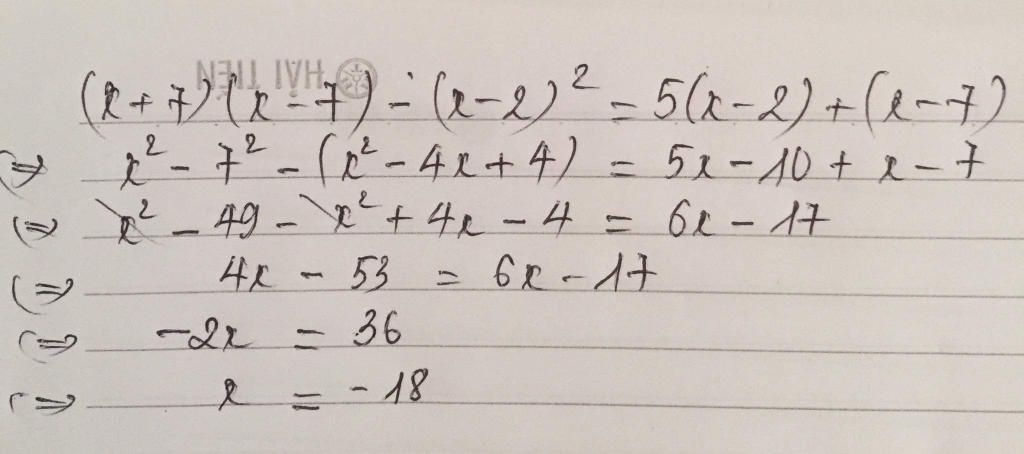 HẢI TIẾN
(x+7)(x-7) - (x-2)² = 5(x-2) + (x-7)
(=> x² - 7² - (x² - 4x + 4) = 5x - 10 + x - 7
(=> x² - 49 - x² + 4x - 4 = 6x - 17
(=> 4x - 53 = 6x - 17
(=> -2x = 36
(=> x = -18